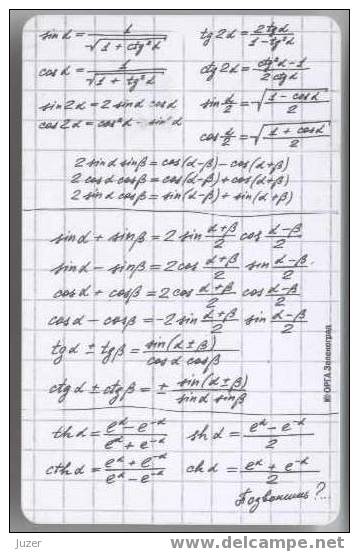 sin α = 1/√(1 + ctg²α)
tg 2α = 2tgα/(1 - tg²α)
cos α = 1/√(1 + tg²α)
ctg 2α = (ctg²α - 1)/(2 ctgα)
sin 2α = 2 sin α cos α
sin α/2 = √((1 - cos α)/2)
cos 2α = cos²α - sin²α
cos α/2 = √((1 + cos α)/2)
2 sin α sin β = cos(α-β) - cos(α+β)
2 cos α cos β = cos(α-β) + cos(α+β)
2 sin α cos β = sin(α-β) + sin(α+β)
sin α + sin β = 2 sin (α+β)/2 cos (α-β)/2
sin α - sin β = 2 cos (α+β)/2 sin (α-β)/2.
cos α + cos β = 2 cos (α+β)/2 cos (α-β)/2
cos α - cos β = -2 sin (α+β)/2 sin (α-β)/2
tg α ± tg β = sin(α ± β)/(cos α cos β)
ctg α ± ctg β = ± sin(α ± β)/(sin α sin β)
th α = (e^α - e^-α)/(e^α + e^-α)
sh α = (e^α - e^-α)/2
cth α = (e^α + e^-α)/(e^α - e^-α)
ch α = (e^α + e^-α)/2
Позвонишь?...
ОРГА Зеленоград
Juzer
www.delcampe.net